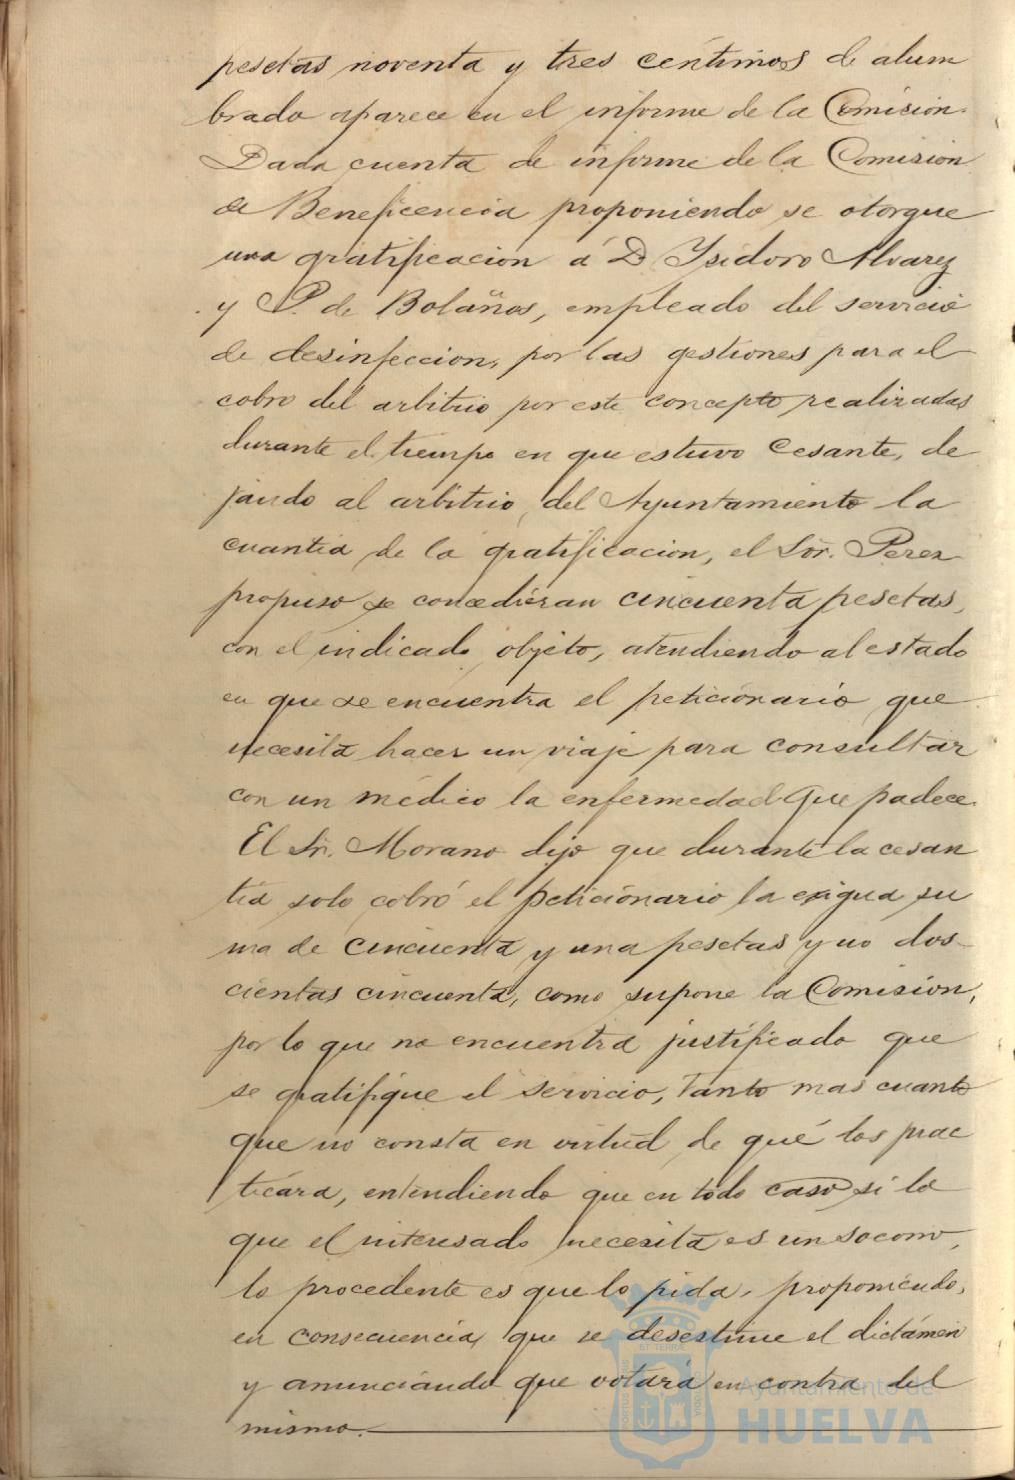 pesetas noventa y tres centimos de alum
brado aparece en el informe de la Comision.
Dada cuenta de informe de la Comision
de Beneficencia proponiendo se otorgue
una gratificacion á D Ysidoro Alvarez
y P. de Bolaños, empleado del servicio
de desinfeccion, por las gestiones para el
cobro del arbitrio por este concepto realizadas
durante el tiempo en que estuvo cesante, de
jando al arbitrio del Ayuntamiento la
cuantia de la gratificacion, el Sór. Perez
propuso se concedieran cincuenta pesetas,
con el indicado objeto, atendiendo al estado
en que se encuentra el peticionario que
necesita hacer un viaje para consultar
con un médico la enfermedad que padece.
El Sr. Morano dijo que durante la cesan
tia solo cobró el peticionario la exigua su
ma de cincuenta y una pesetas y no dos-
cientas cincuenta, como supone la Comision,
por lo que no encuentra justificado que
se gratifique el servicio, tanto mas cuanto
que no consta en virtud de qué los prac
ticara, entendiendo que en todo caso si lo
que el interesado necesita es un socorro,
lo procedente es que lo pida, proponiendo,
en consecuencia, que se desestime el dictámen
y anunciando que votará en contra del
mismo.
Ayuntamiento de
HUELVA